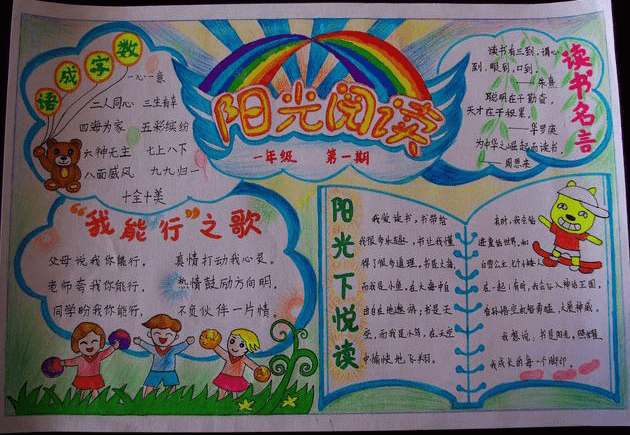 数字成语
一心一意
二人同心 三生有幸
四海为家 五彩缤纷
六神无主 七上八下
八面威风 九九归一
十全十美
阳光阅读
一年级 第一期
读书名言
读书有三到,谓心
到,眼到,口到。
——朱熹
聪明在于勤奋,
天才在于积累。
——华罗庚
为中华之崛起而读书。
——周恩来
“我能行”之歌
父母说我你能行, 真情打动我心灵。
老师夸我你能行, 热情鼓励方向明。
同学盼我你能行, 不负伙伴一片情。
阳光下悦读
我爱读书,书带给
我很多乐趣,书让我懂
得了很多道理。书是大海,
而我是小鱼,在大海中自
由自在地遨游;书是天
空,而我是小鸟,在天空
中愉快地飞翔。
有时,我会钻
进童话世界,和
白雪公主、七个小矮人
在一起;有时,我会进入神话王国,
看孙悟空
我想说,书是阳光,照耀
我成长的每一个脚印。